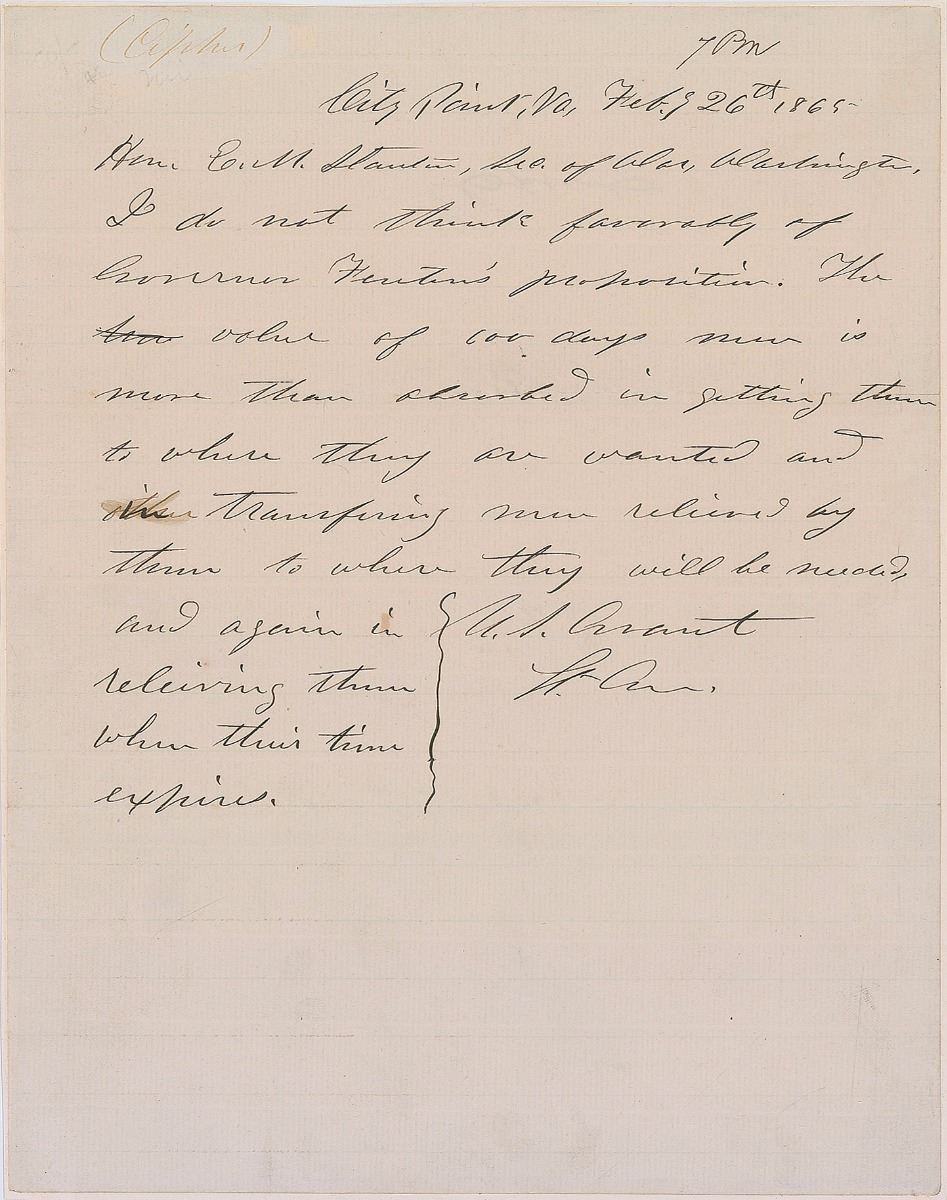 (Cipher)
7 Pm
City Point, Va, Feb.y 26th 1865
Hon. E. M. Stanton, Sec. of War, Washington,
I do not think favorably of
Governor Fenton's proposition. The
value of 100 days men is
more than absorbed in getting them
to where they are wanted and
in transfering men relieved by
them to where they will be needed,
and again in
releiving them
when their time
expires.
U. S. Grant
Lt. Gen.